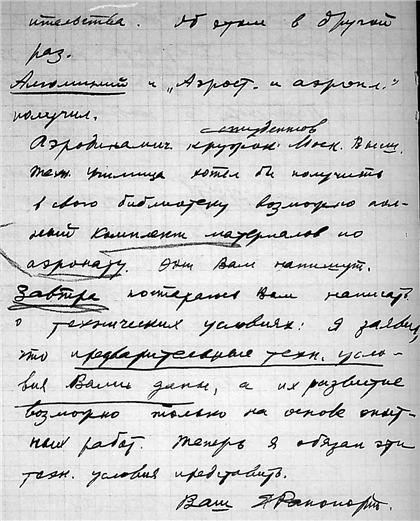 ительства. Об этом в другой
раз.
Алюминий и „Аэрост. и аэропл."
получил.
студентов
Аэродинамич кружок Моск. Высш.
Техн. училища хотел бы получить
в свою библиотеку возможно пол-
ный комплект материалов по
аэронату. Они Вам напишут.
Завтра постараюсь Вам написать
о технических условиях: я заявил,
что предварительные техн. усло-
вия Вами даны, а их развитие
возможно только на основе опыт-
ных работ. Теперь я обязан эти
техн. условия представить.
Ваш ЯРапопорт.